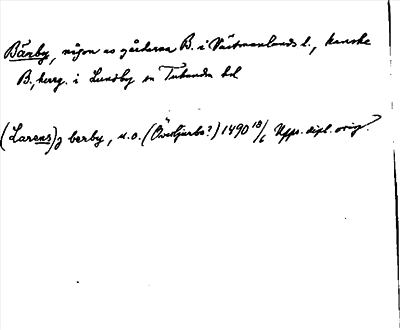 Bärby, någon av gårdarna B. i Västmanlands l., kanske
B., herrg. i Lundby sn Tuhundra hd
(Larens) j berby, u.o. (Övertjurbo?) 1490 18/6 Upps. dipl. orig.